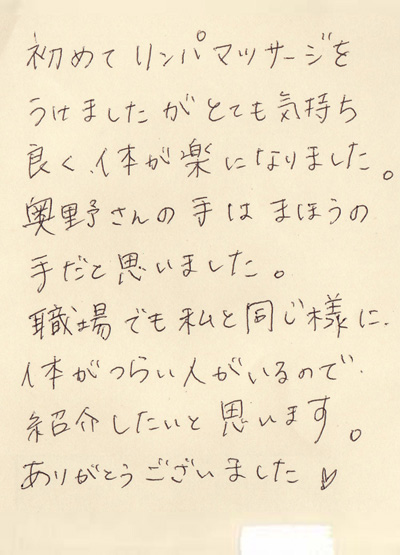 初めてリンパマッサージを
うけましたがとても気持ち
良く、体が楽になりました。
奥野さんの手はまほうの
手だと思いました。
職場でも私と同じ様に、
体がつらい人がいるので、
紹介したいと思います。
ありがとうございました♡